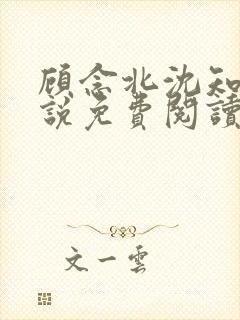 顾念北沈知
說免費閱讀
文一雲